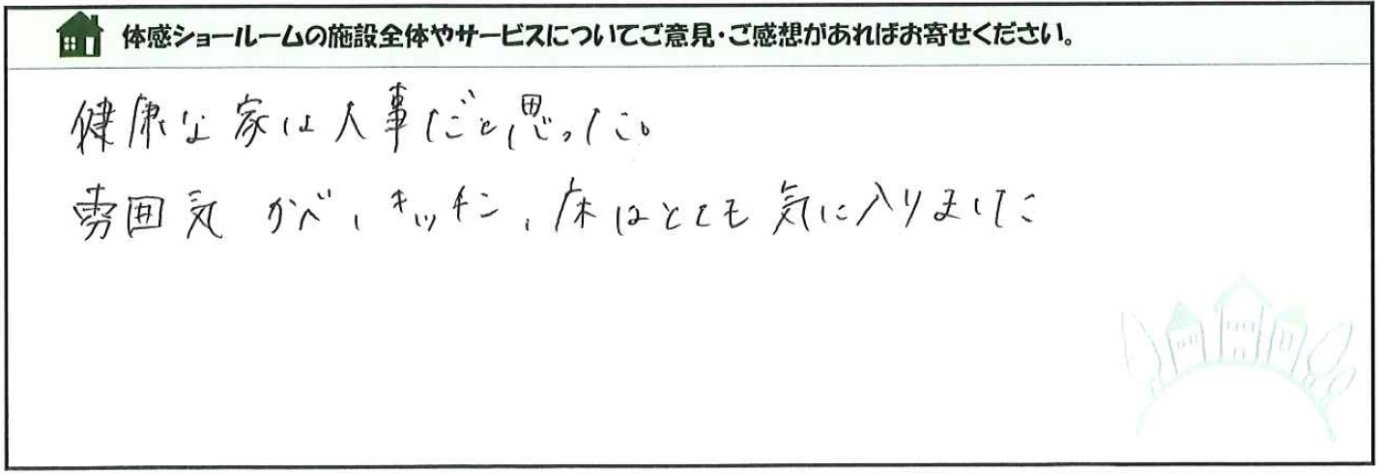 体感ショールームの施設全体やサービスについてご意見・ご感想があればお寄せください。
健康な家は大事だと思った。
雰囲気 かべ、キッチン、床はとても気に入りました